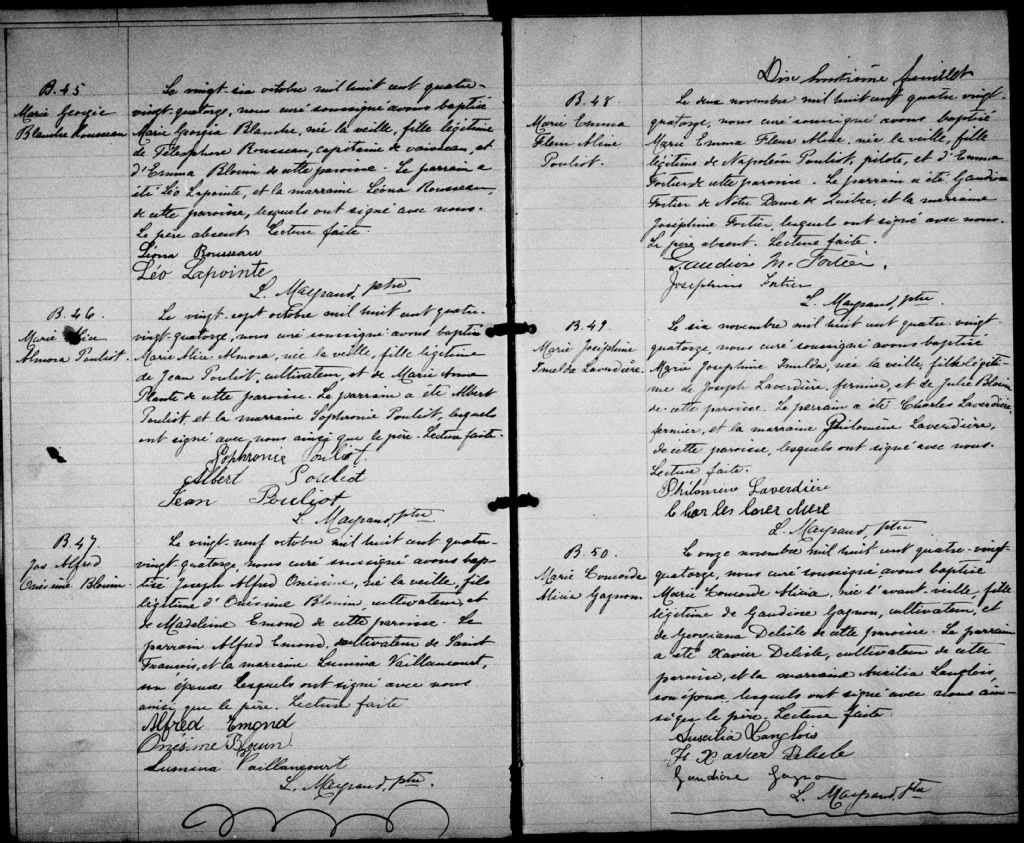 B.45
Marie Georgie
Blanche Rousseau
Le vingt-six octobre mil huit cent quatre-
vingt-quatorze, nous curé soussigné avons baptisé
Marie Georgia Blanche, née la veille, fille légitime
de Télesphore Rousseau, capitaine de vaisseau, et
d'Emma Blouin de cette paroisse. Le parrain a
été Léo Lapointe, et la marraine Léona Rousseau,
de cette paroisse, lesquels ont signé avec nous.
Le père absent. Lecture faite.
Léona Rousseau
Léo Lapointe
L. Mayrand, ptre
B.46.
Marie Alice
Almora Pouliot.
Le vingt-sept octobre mil huit cent quatre-
vingt-quatorze, nous curé soussigné avons baptisé
Marie Alice Almora, née la veille, fille légitime
de Jean Pouliot, cultivateur, et de Marie Anne
Plante de cette paroisse. Le parrain a été Albert
Pouliot, et la marraine Sophronie Pouliot, lesquels
ont signé avec nous ainsi que le père. Lecture faite.
Sophronie Pouliot
Albert Pouliot
Jean Pouliot
L. Mayrand, ptre
B.47
Jos Alfred
Onésime Blouin
Le vingt-neuf octobre mil huit cent quatre-
vingt-quatorze, nous curé soussigné avons bap-
tisé Joseph Alfred Onésime, né la veille, fils
légitime d'Onésime Blouin, cultivateur, et
de Madeleine Emond de cette paroisse. Le
parrain Alfred Emond, cultivateur de Saint
François, et la marraine Lumina Vaillancourt,
son épouse lesquels ont signé avec nous
ainsi que le père. Lecture faite
Alfred Emond
Onésime Blouin
Lumina Vaillancourt
L. Mayrand, ptre.
Dix huitième feuillet
B.48.
Marie Emma
Fleur Aline
Pouliot.
Le deux novembre mil huit cent quatre vingt-
quatorze, nous curé soussigné avons baptisé
Marie Emma Fleur Aline, née la veille, fille
légitime de Napoléon Pouliot, pilote, et d'Emma
Fortier de cette paroisse. Le parrain a été Gaudios
Fortier de Notre Dame de Québec, et la marraine
Joséphine Fortier, lesquels ont signé avec nous.
Le père absent. Lecture faite.
Gaudios M. Fortier.
Josephine Fortier
L. Mayrand, ptre.
B.49.
Marie Joséphine
Imelda Laverdière.
Le six novembre mil huit cent quatre-vingt-
quatorze, nous curé soussigné avons baptisé
Marie Josephine Imelda, née la veille, fille légiti-
me de Joseph Laverdière, fermier, et de Julie Blouin
de cette paroisse. Le perrain a été Charles Laverdière,
fermier, et la marraine Philomène Laverdière,
de cette paroisse, lesquels ont signé avec nous.
Lecture faite.
Philomène Laverdière
Charles Laver diere
L. Mayrand, ptre
B.50.
Marie Comorde
Alicia Gagnon.
Le onze novembre mil huit cent quatre-vingt-
quatorze, nous curé soussigné avons baptisé
Marie Comorde Alicia, née l'avant-veille, fille
légitime de Gaudiose Gagnon, cultivateur, et
de Georgiana Delisle de cette paroisse. Le parrain
a été Xavier Delisle, cultivateur de cette
paroisse, et la marraine Auxilia Langlois,
son épouse, lesquels ont signé avec nous ain-
si que le père. Lecture faite.
Auxilia Langlois
Fs Xavier Delisle
Gaudiose Gagnon
L. Mayrand, ptre